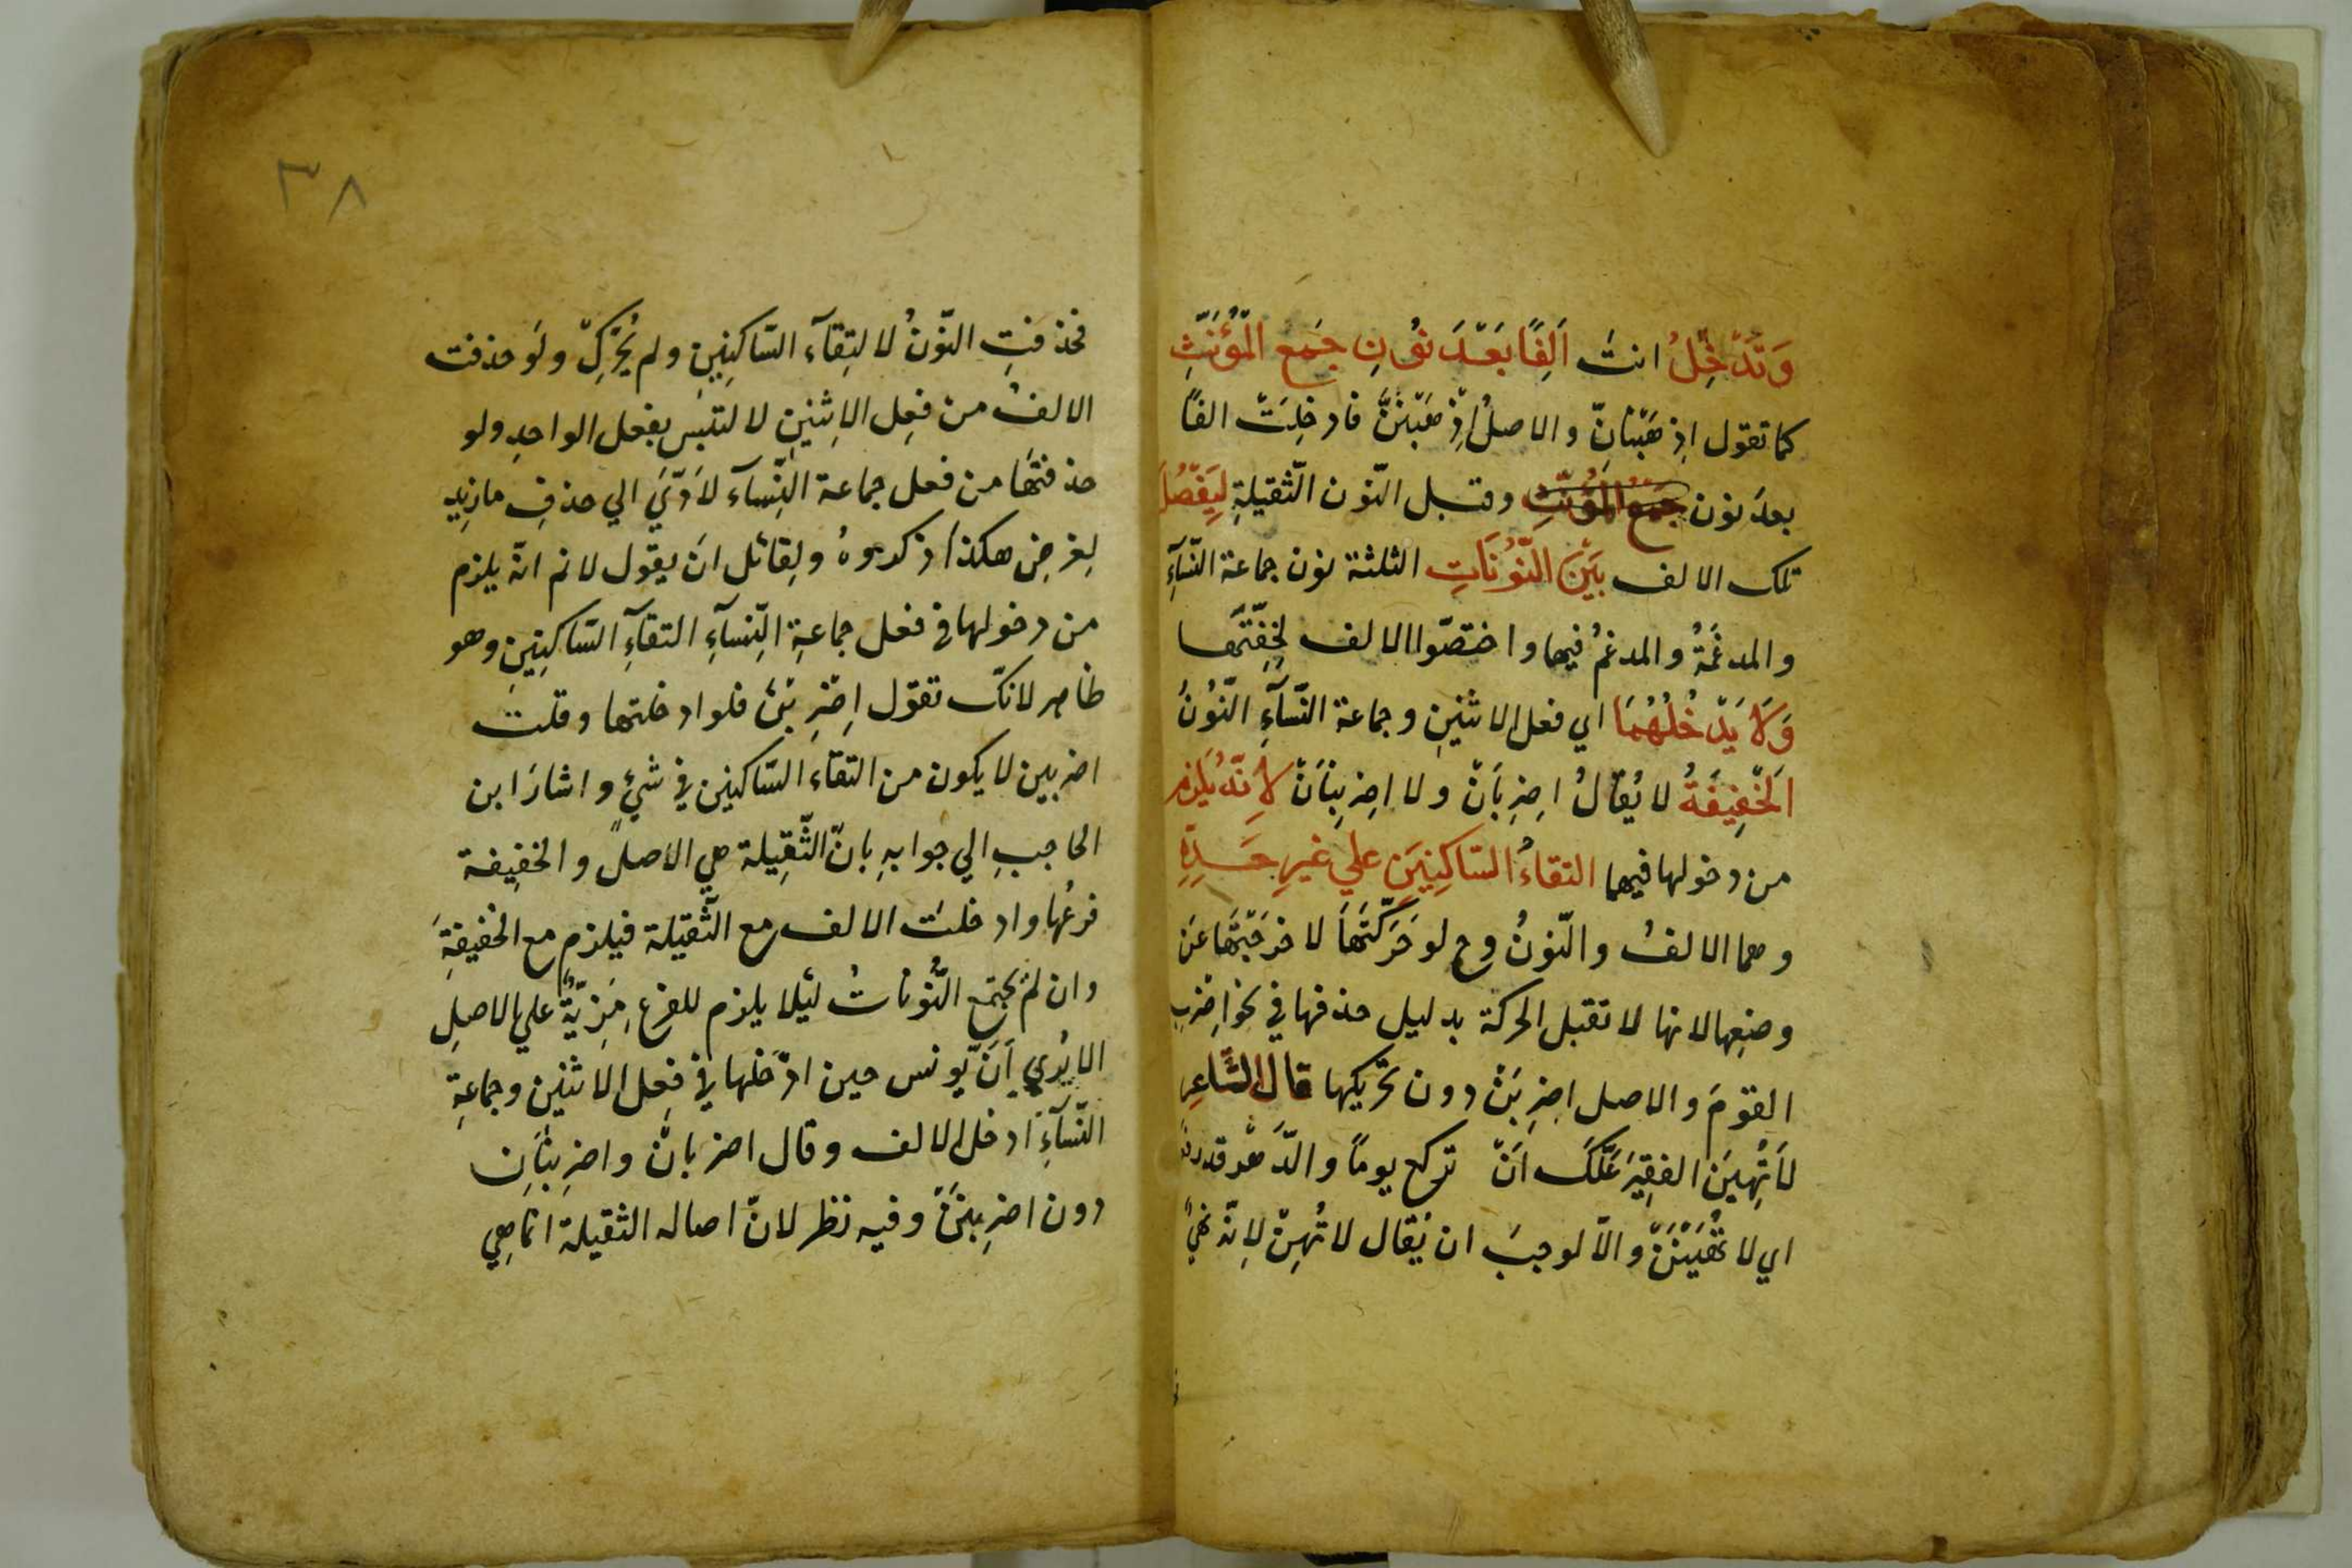 وَتُدْخِلُ انتَ اَلِفًا بَعْدَ نُونِ جَمعِ المُؤَنَّثِ
كما تقول اِذهَبْنَانِّ والاصلُ اِذْهَبْنَنَّ فادخِلَتْ الفًا
بعدَ نون جَمْعِ المُؤَنَّثِ وقبل النّون الثّقيلةِ لِيَفْصُلَ
تلك الالف بَيْنَ النُّوْنَاتِ الثلثة نون جماعة النّسَآءِ
والمدغَمَةُ والمدغمُ فيها واختصّوا الالف لِخِفَّتها
وَلَا يَدْخُلُهُمَا اي فعل الاثنينِ وجماعة النّسَآءِ النّوُنُ
الخَفِيفَةُ لا يُقالُ اِضرِبَانْ ولا اضرِبنَانْ لِاَنَّهُ يَلْزَمُ
من دخولها فيهما التقاءُ السّاكِنَيْنِ علي غيرِ حَدِّهِ
وهما الالفُ والنّونُ وح لو حَرَّكتَهَا لاخرَجْتَهَا عَن
وضعِها لانها لا تقبل الحركة بدليل حذفها في نحو اِضرِبِ
القومَ والاصل اضرِبَنْ دون تحريكها قال الشّاعِر
لَا تُهِينَ الفقِيرَ عَلَّكَ اَنْ تركع يومًا والدَّهْرُ قد رفعَه
اي لا تُهِيْنَنْ والّا لوجبَ ان يُقال لا تُهِنْ لِانّه نهيٌ
فحُذفتِ النّونُ لالتِقآءِ السّاكنَينِ ولم يُحَرَّكْ ولَو حذفت
الالفُ من فِعل الاِثنينِ لالتبسَ بفعل الواحدِ ولو
حذفتهَا من فعل جماعة النّسآء لاَدّيَ الي حذفِ ما زِيد
لِغرضٍ هكذا ذكروهُ ولِقائل اَن يقول لانم انّه يلزم
من دخولها في فعل جماعةِ النِّسآءِ التقآءِ السّاكنَينِ وهو
ظاهر لانكّ تقول اِضْرِبْنَ فلو ادخلتها وقلت
اضربنن لا يكون من التقاء السّاكنين في شئٍ واشارَ ابن
الحاجبِ الي جوابهِ بانّ الثّقِيلة هي الاصلُ والخفِيفة
فرعُها وادخلت الالف مع الثّقيلة فيلزم مع الخفيفةِ
وان لم يجتمع النُّونَاتُ لئلا يلزم للفرعِ مَزِيّةٌ علي الاصلِ
الا يُري اَنّ يونس حين ادْخَلها في فِعل الاثنين وجماعةِ
النّسآءِ ادخل الالف وقال اضربانْ واضرِبنَانْ
دون اضرِبنَنْ وفيه نظر لانّ اصاله الثقيلة انّما هي
٣٨